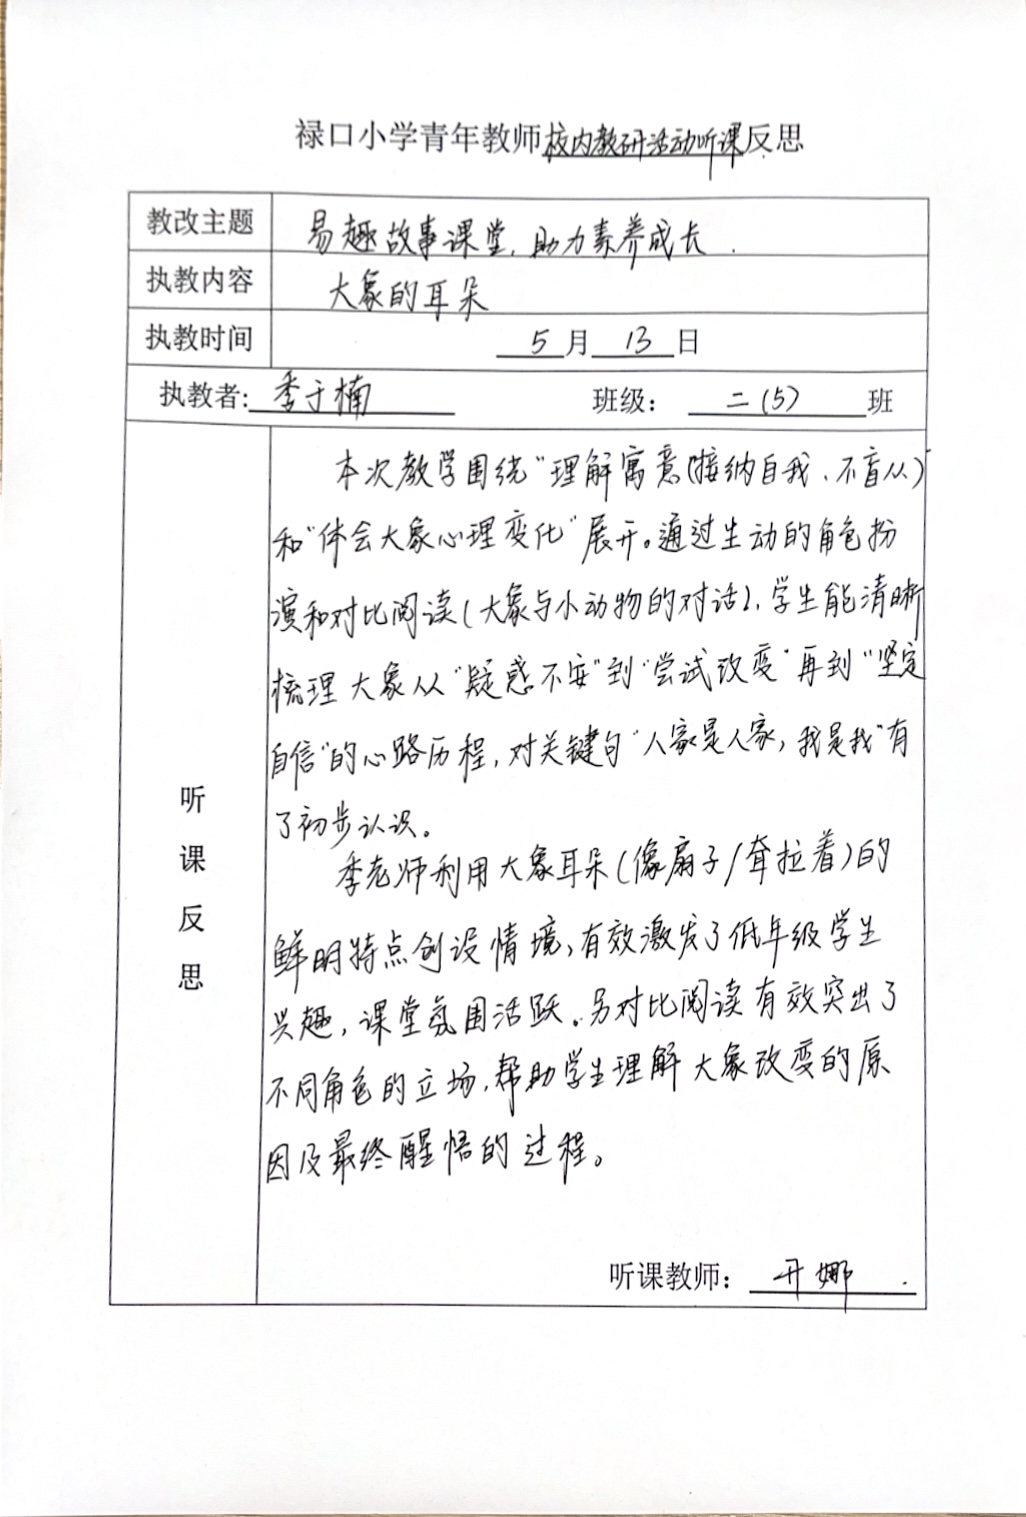 禄口小学青年教师校内教研活动听课反思
教改主题 易趣故事课堂,助力素养成长.
执教内容 大象的耳朵
执教时间 5月13日
执教者:季于楠 班级:二(5)班
听课反思
本次教学围绕“理解寓意(接纳自我、不盲从)”
和“体会大象心理变化”展开。通过生动的角色扮
演和对比阅读(大象与小动物的对话),学生能清晰
梳理大象从“疑惑不安”到“尝试改变”再到“坚定
自信”的心路历程,对关键句“人家是人家,我是我”有
了初步认识。
季老师利用大象耳朵(像扇子/耷拉着)的
鲜明特点创设情境,有效激发了低年级学生
兴趣,课堂氛围活跃。另对比阅读有效突出了
不同角色的立场,帮助学生理解大象改变的原
因及最终醒悟的过程。
听课教师:开娜.